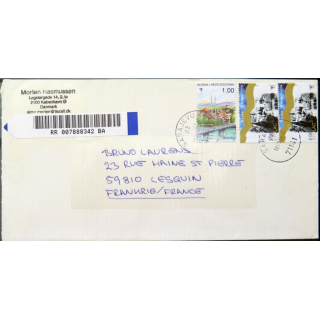 Morten Rasmussen
Løgstørgade 14, 2.tv
2100 København Ø
Danmark
RR 007888342 BA
1.00
BRUNO LAURENS
23 RUE HAINE ST PIERRE
59810 LESQUIN
FRANKRIG/FRANCE